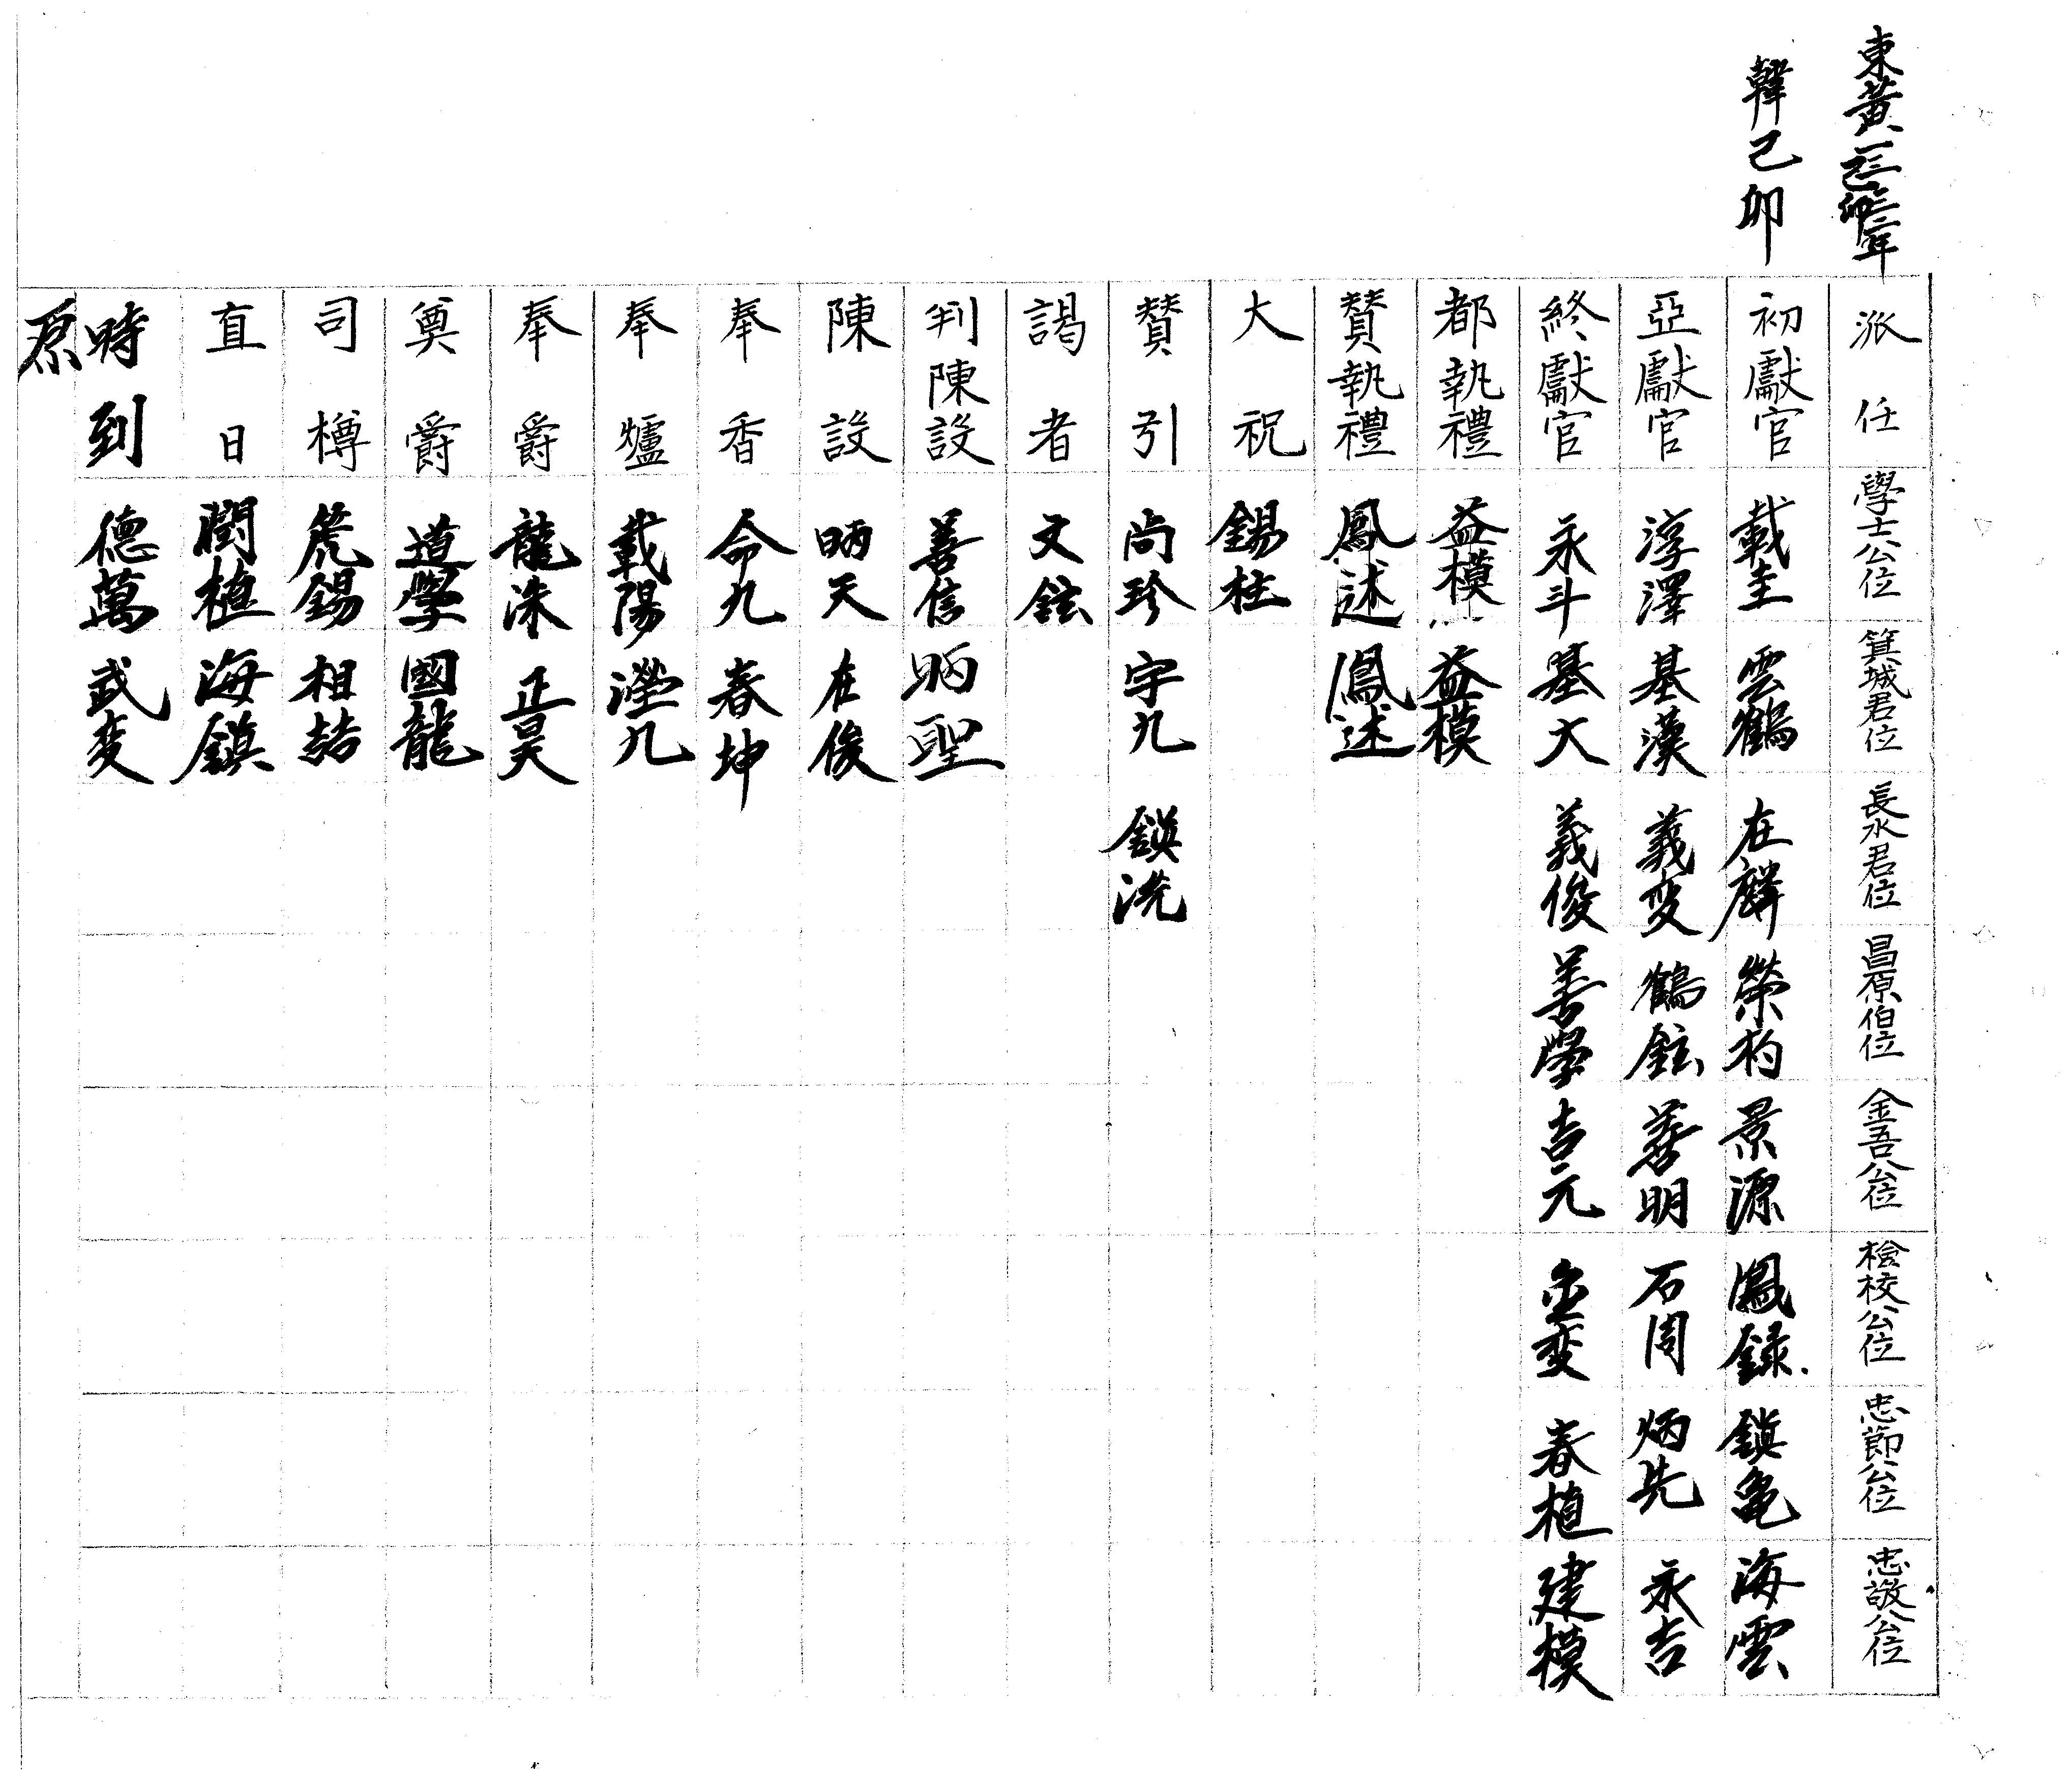 東黃一三三二年
己卯
韓己卯
派任 學士公位 箕城君位 長水君位 昌原伯位 金吾公位 檢校公位 忠節公位 忠敬公位
初獻官 載圭 雲鶴 在麟 榮杓 景源 鳳錄 鎭龜 海雲
亞獻官 淳澤 基漢 義変 鶴鉉 善明 石周 炳先 永吉
終獻官 永斗 基大 義俊 善學 吉元 変 春植 建模
都執禮 益模 益模
贊執禮 鳳述 鳳述
大祝 錫柱
贊引 尚珍 宇九 鎂洗
謁者 文鉉
判陳設 善信 昞聖
陳設 昞天 在俊
奉香 命九 春坤
奉爐 載陽 瀅九
奉爵 龍洙 正昊
奠爵 道學 國龍
司樽 箎錫 相喆
直日 閏植 海鎭
時到 德萬 武変
原